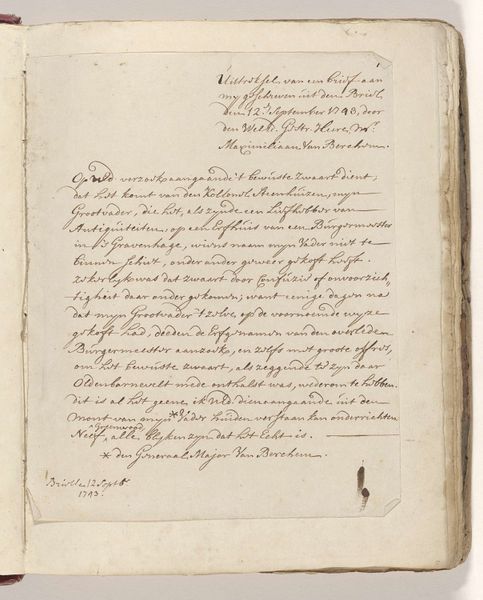 1
Uittreksel van een brief aan
my geschreven uit den Briel
den 12.e September 1743, door
den WelEd. Gestr. Heere, Mr.
Maximiliaan Van Berchem.
Op UEd. verzoek aangaande 't bewuste zwaart dient,
dat het komt van den Kollonel Steenhuizen, myn
Grootvader, die het, als zynde een Liefhebber van
Antiquiteiten, op een Erfhuis van een Burgermeester
in 's Gravenhage, wiens naam myn Vader niet te
binnen schiet, onder ander geweer gekoft heeft.
zekerlyk was dat zwaart door Confuzie of onvoorzich-
tigheid daar onder gekomen; want eenige dagen na
dat myn Grootvader 't zelve, op de voornoemde wyze
gekoft had, deeden de Erfgenamen van den overleden
Burgermeester aanzoek, en zelfs met groote offres,
om het bewuste zwaart, als zeggende te zyn daar
Oldenbarnevelt mede onthalst was, wederom te hebben.
dit is al het geene ik UEd. dienaangaande uit den
mont van myn * Vader
Neef, alle blyken zyn dat het Echt is.
* den Generaal Major Van Berchem.
Brielle 12 Septb.
1743.